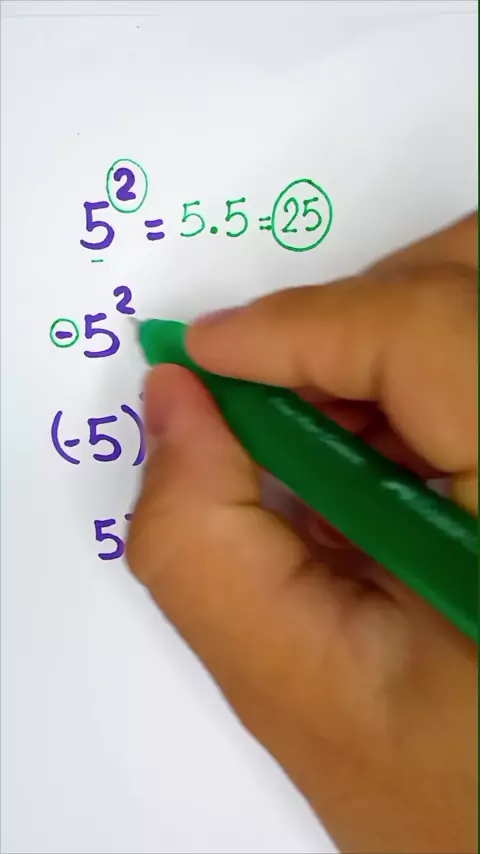 5² = 5.5 = 25
-5²
(-5)
5